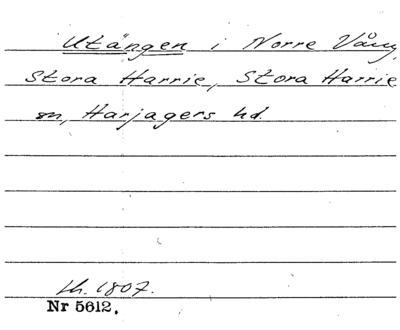 Utängen i Norre Vång,
Stora Harrie, Stora Harrie
sn, Harjagers hd.
lh. 1807.
Nr 5612.